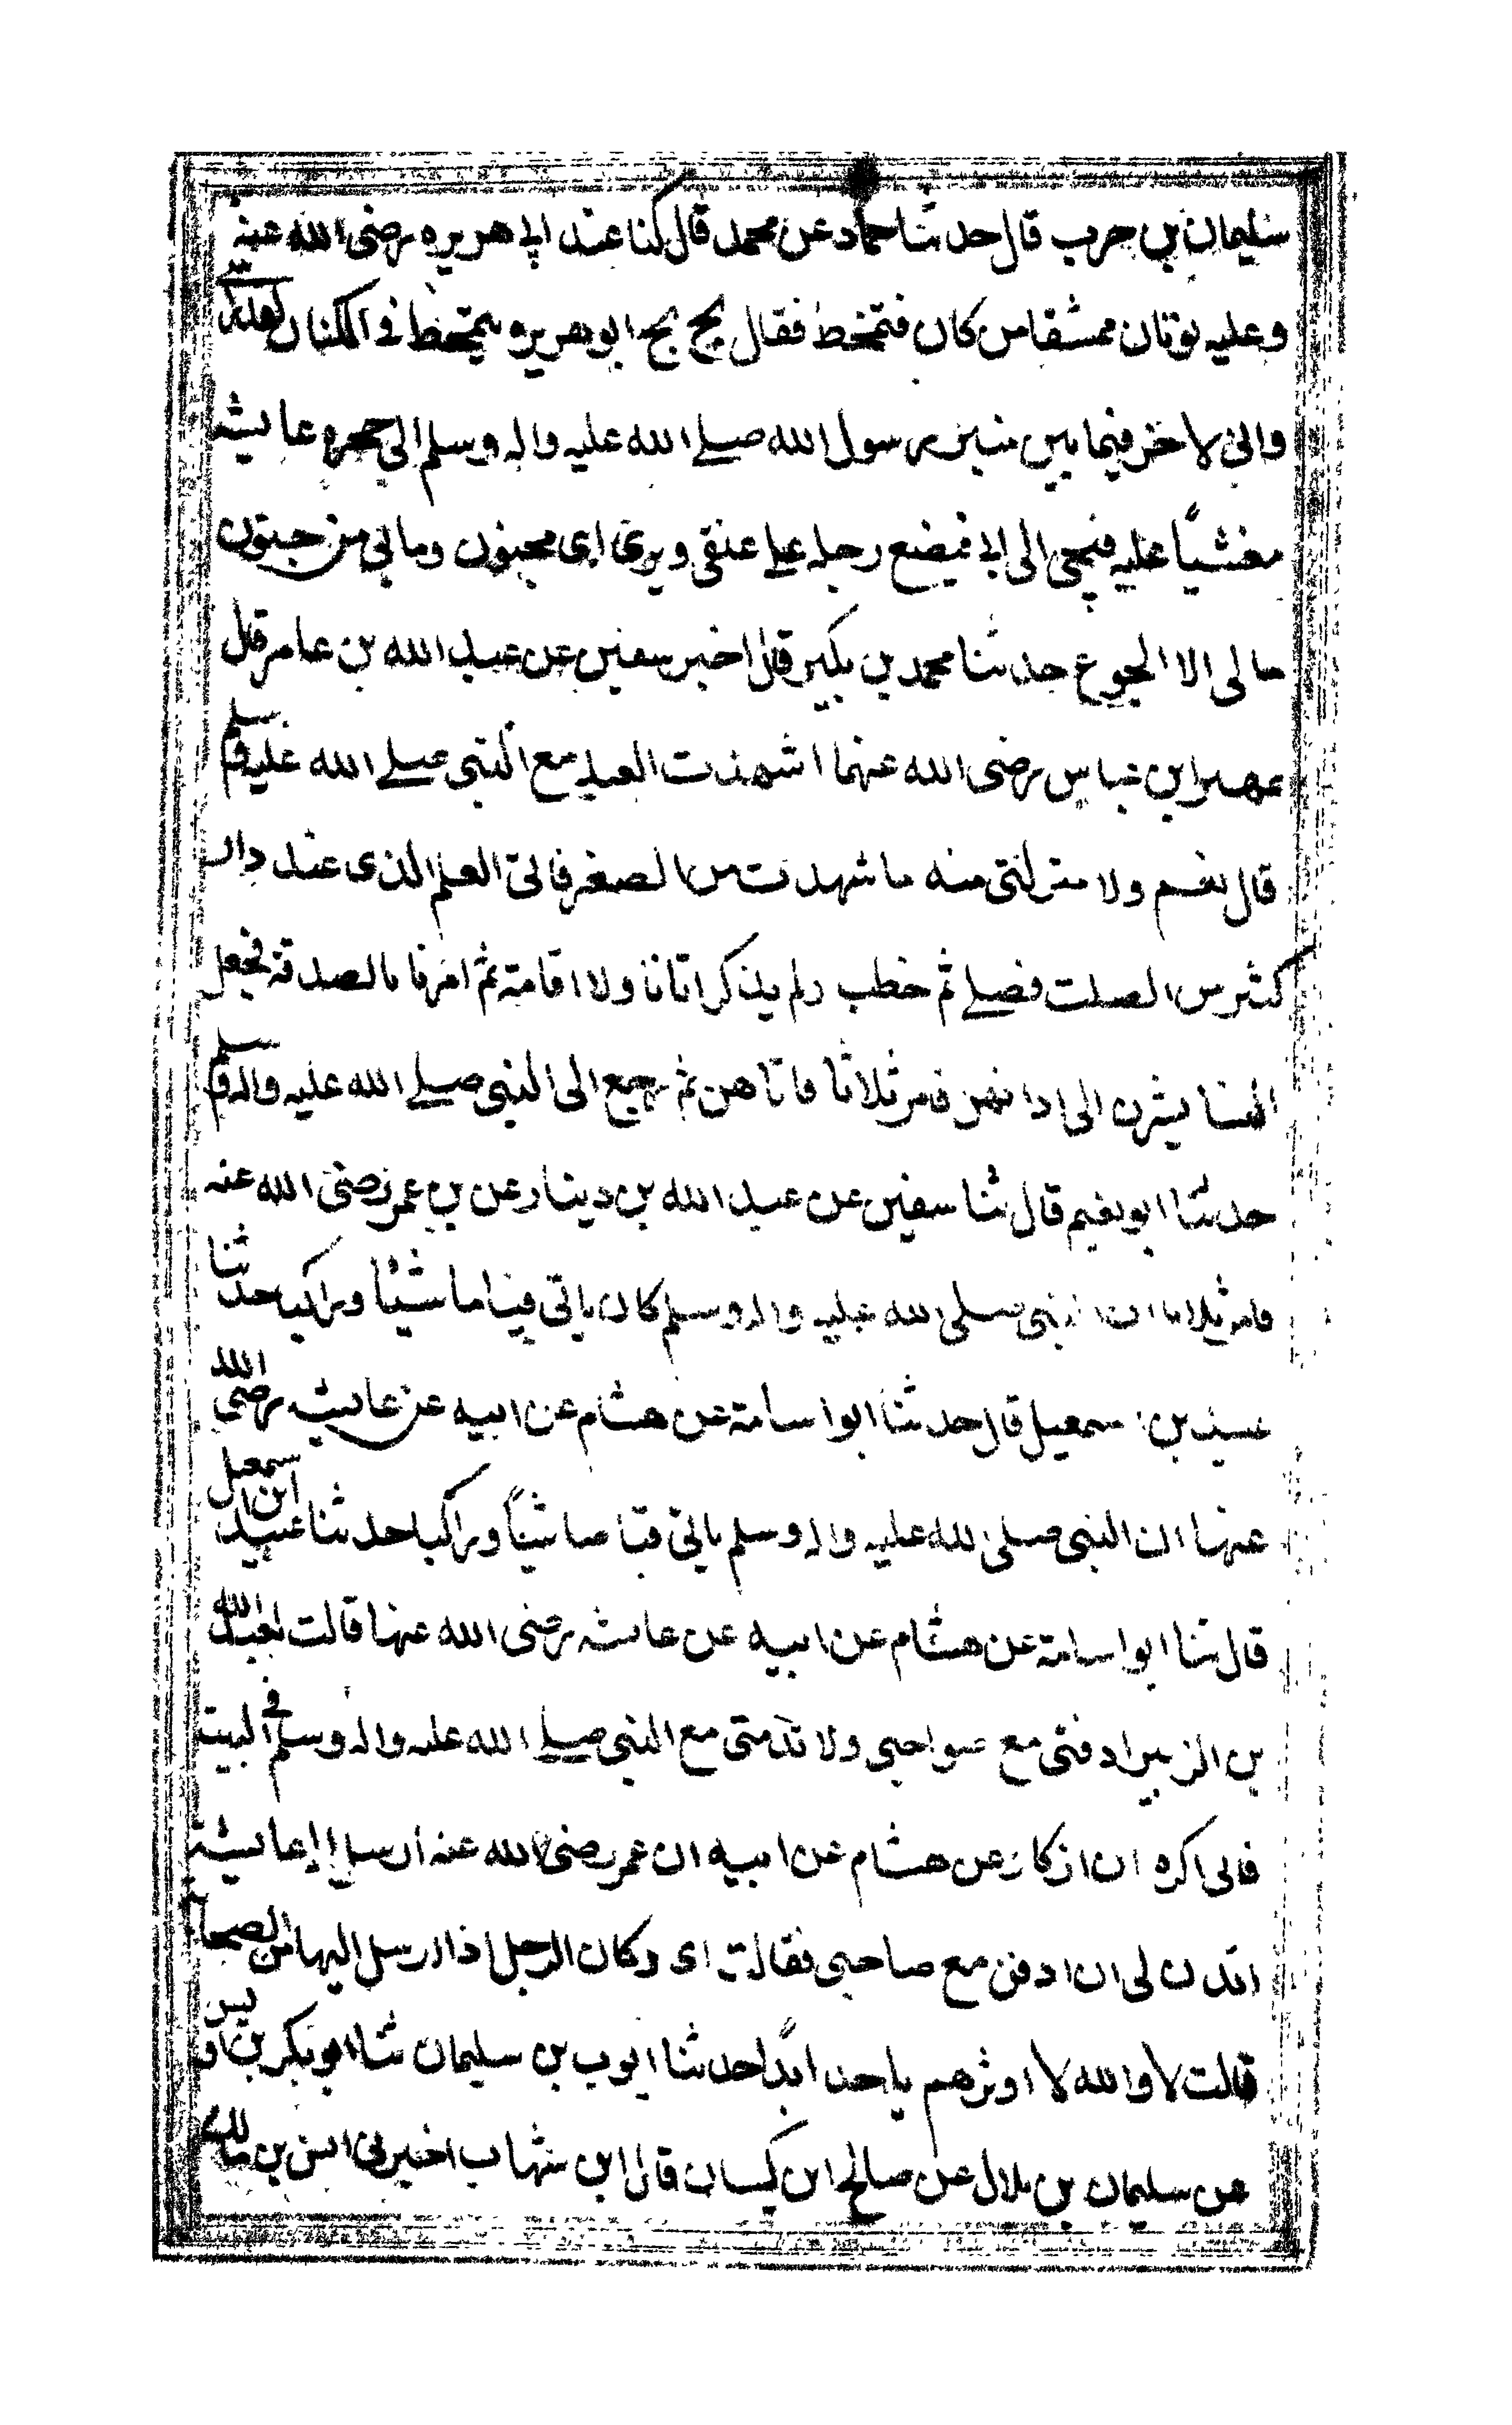 سليمان بن حرب قال حدثنا حماد عن محمد قال كنا عند ابي هريره رضى الله عنه
وعليه ثوبان ممشقا من كان فتمخط فقال بخ بخ ابو هريره يتمخط في الكتان لقد رايتني
واني لاخر فيما بين منبر رسول الله صلے الله عليه واله وسلم الى حجره عايشه
مغشياً عليه فيجى الى الى فيضع رجله على عنقى ويرى اى مجنون ومابي من جنون
مالى الا الجوع حدثنا محمد بن بكير قال اخبر سفين عن عبد الله بن عامر قال
ابن عباس رضى الله عنهما اشهدت العيد مع النبى صلے الله عليه وسلم
قال نعم ولا منزلتى منه ما شهدت من الصغر فاتى العلم الذى عند دار
كثير من الصلت فصلے ثم خطب ولم يذكر اذانا ولا اقامة ثم امرنا بالصدقة فجعل
النسا يشرن الى اذانهن فامر ثلاثا فاتاهن ثم رجع الى النبى صلے الله عليه واله وسلم
حدثنا ابو نعيم قال ثنا سفين عن عبد الله بن دينار عن بن عمر رضى الله عنه
فامر ثلاثا ان النبى صلى الله عليه واله وسلم كان ياتى قبا ماشيًا وراكبا حدثنا
عبيد بن اسمعيل قال حدثنا ابو اسامة عن هشام عن ابيه عن عايشه رضى الله
عنها ان النبى صلى الله عليه واله وسلم ياتى قبا ماشيًا وراكبا حدثنا عبيد ابن اسمعيل
قال ثنا ابو اسامة عن هشام عن ابيه عن عايشه رضى الله عنها قالت لعبد الله
بن الزبير ادفنى مع صواحبى ولا تدفنى مع النبى صلے الله عليه واله وسلم في البيت
فانى اكره ان ازكا وعن هشام عن ابيه ان عمر رضى الله عنه ارسل الى عايشة
ائذن لى ان ادفن مع صاحبى فقالت اى وكان الرجل اذا ارسل اليها من الصحابة
قالت لا والله لا اوثرهم باحد ابدًا حدثنا ايوب بن سليمان ثنا ابو بكر بن اويس
عن سليمان بن بلال عن صالح ابن كيسان قال ابن شهاب اخبرنى انس بن مالك